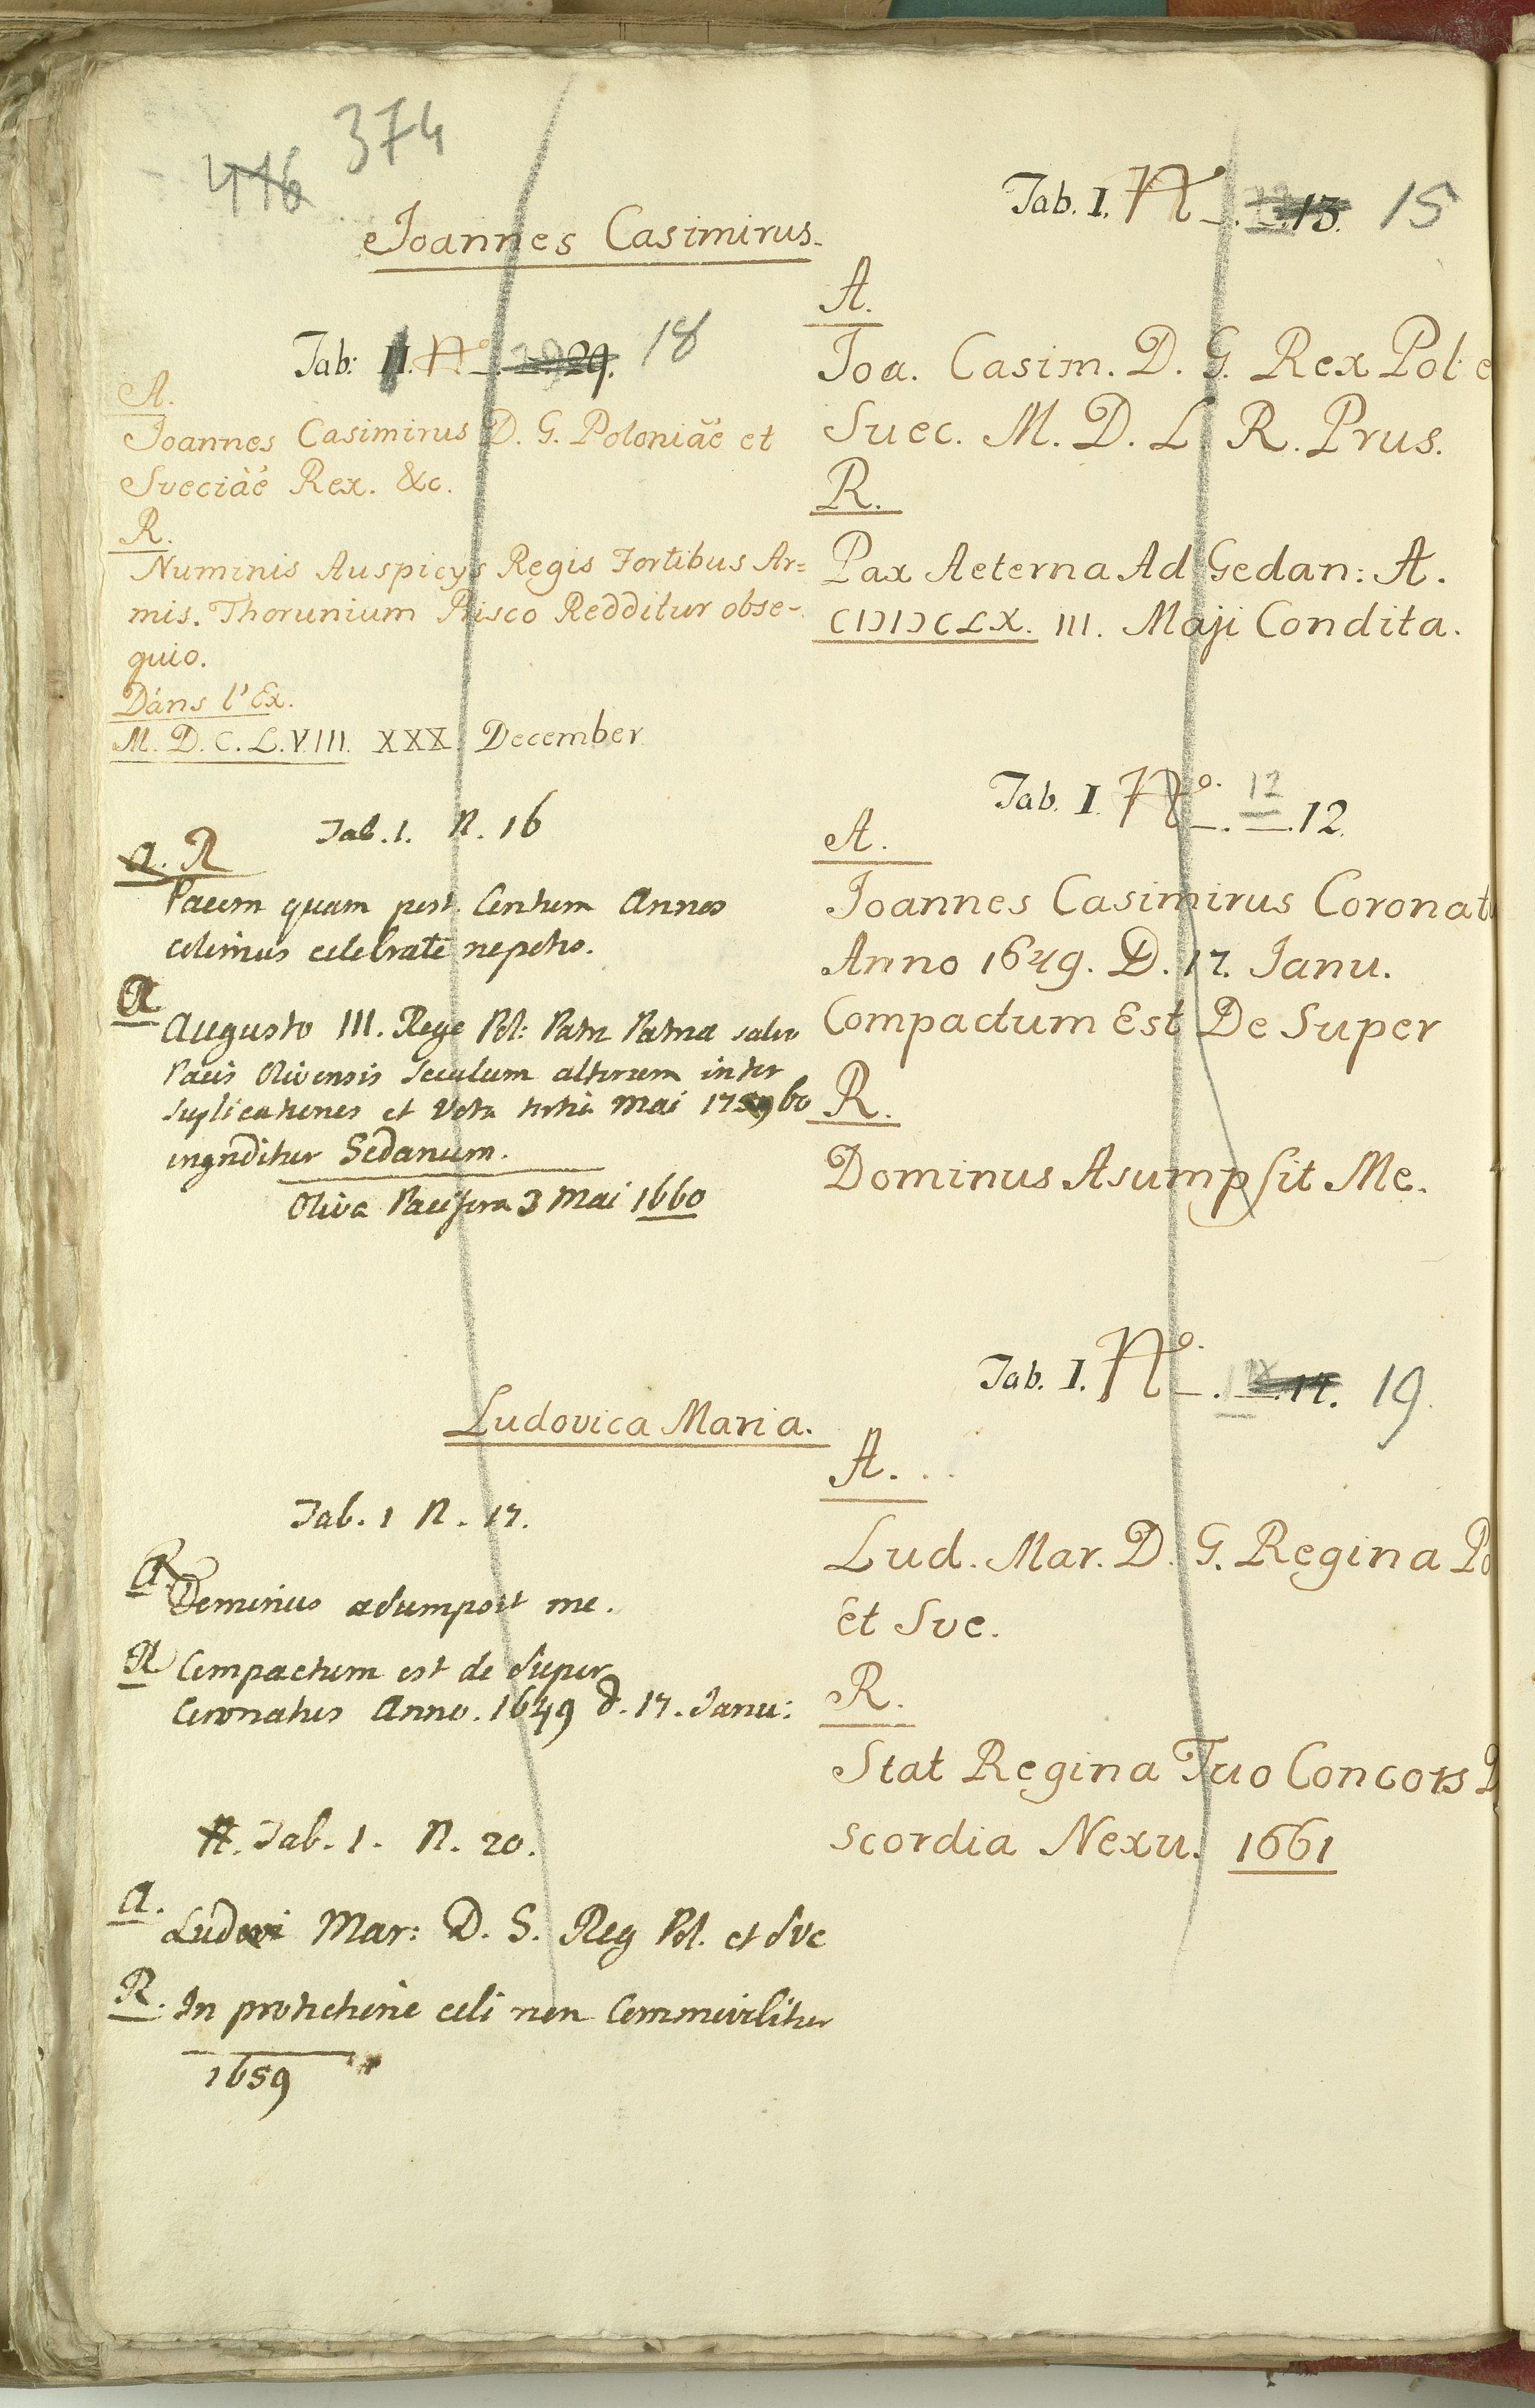 374
416
Joannes Casimirus.
Tab: II. No. 29. 18
A.
Joannes Casimirus D. G. Poloniae et
Sveciae Rex. &c.
R.
Numinis Auspicys Regis Fortibus Ar=
mis. Thorunium Prisco Redditur obse-
quio.
Dans l'Ex.
M. D. C. L. VIII. XXX December
Tab. 1. N. 16
a. R
Pacem quam post Centum Annos
colimus celebrate nepotes.
A
Augusto III. Rege Pol: Patr Patriae salvo
Pacis Olivensis Seculum alterum inter
Suplicationes et Vota tertia Mai 1760
ingreditur Gedanum.
Oliva Pacifera 3 Mai 1660
Ludovica Maria.
Tab. 1 N. 17.
A.
Dominus adumpsit me.
R Compactum est de Super
Coronatus Anno. 1649 d. 17. Janu:
Tab. 1. N. 20.
A.
Ludovi Mar: D. G. Reg Pol. et Sve
R. In protectione celi non Commovebitur
1659
Tab. I. No. 13. 15
A.
Joa. Casim. D. G. Rex Pol: e
Suec. M. D. L R. Prus.
R.
Pax Aeterna Ad Gedan: A.
CIƆIƆCLX. III. Maji Condita.
Tab. I. No. 12 12.
A.
Joannes Casimirus Coronat
Anno 1649. D. 17. Janu.
Compactum Est De Super
R.
Dominus Asumpsit Me.
Tab. I. No. 17. 19.
A...
Lud. Mar. D. G. Regina Po
et Sve.
R.
Stat Regina Tuo Concors D
scordia Nexu. 1661